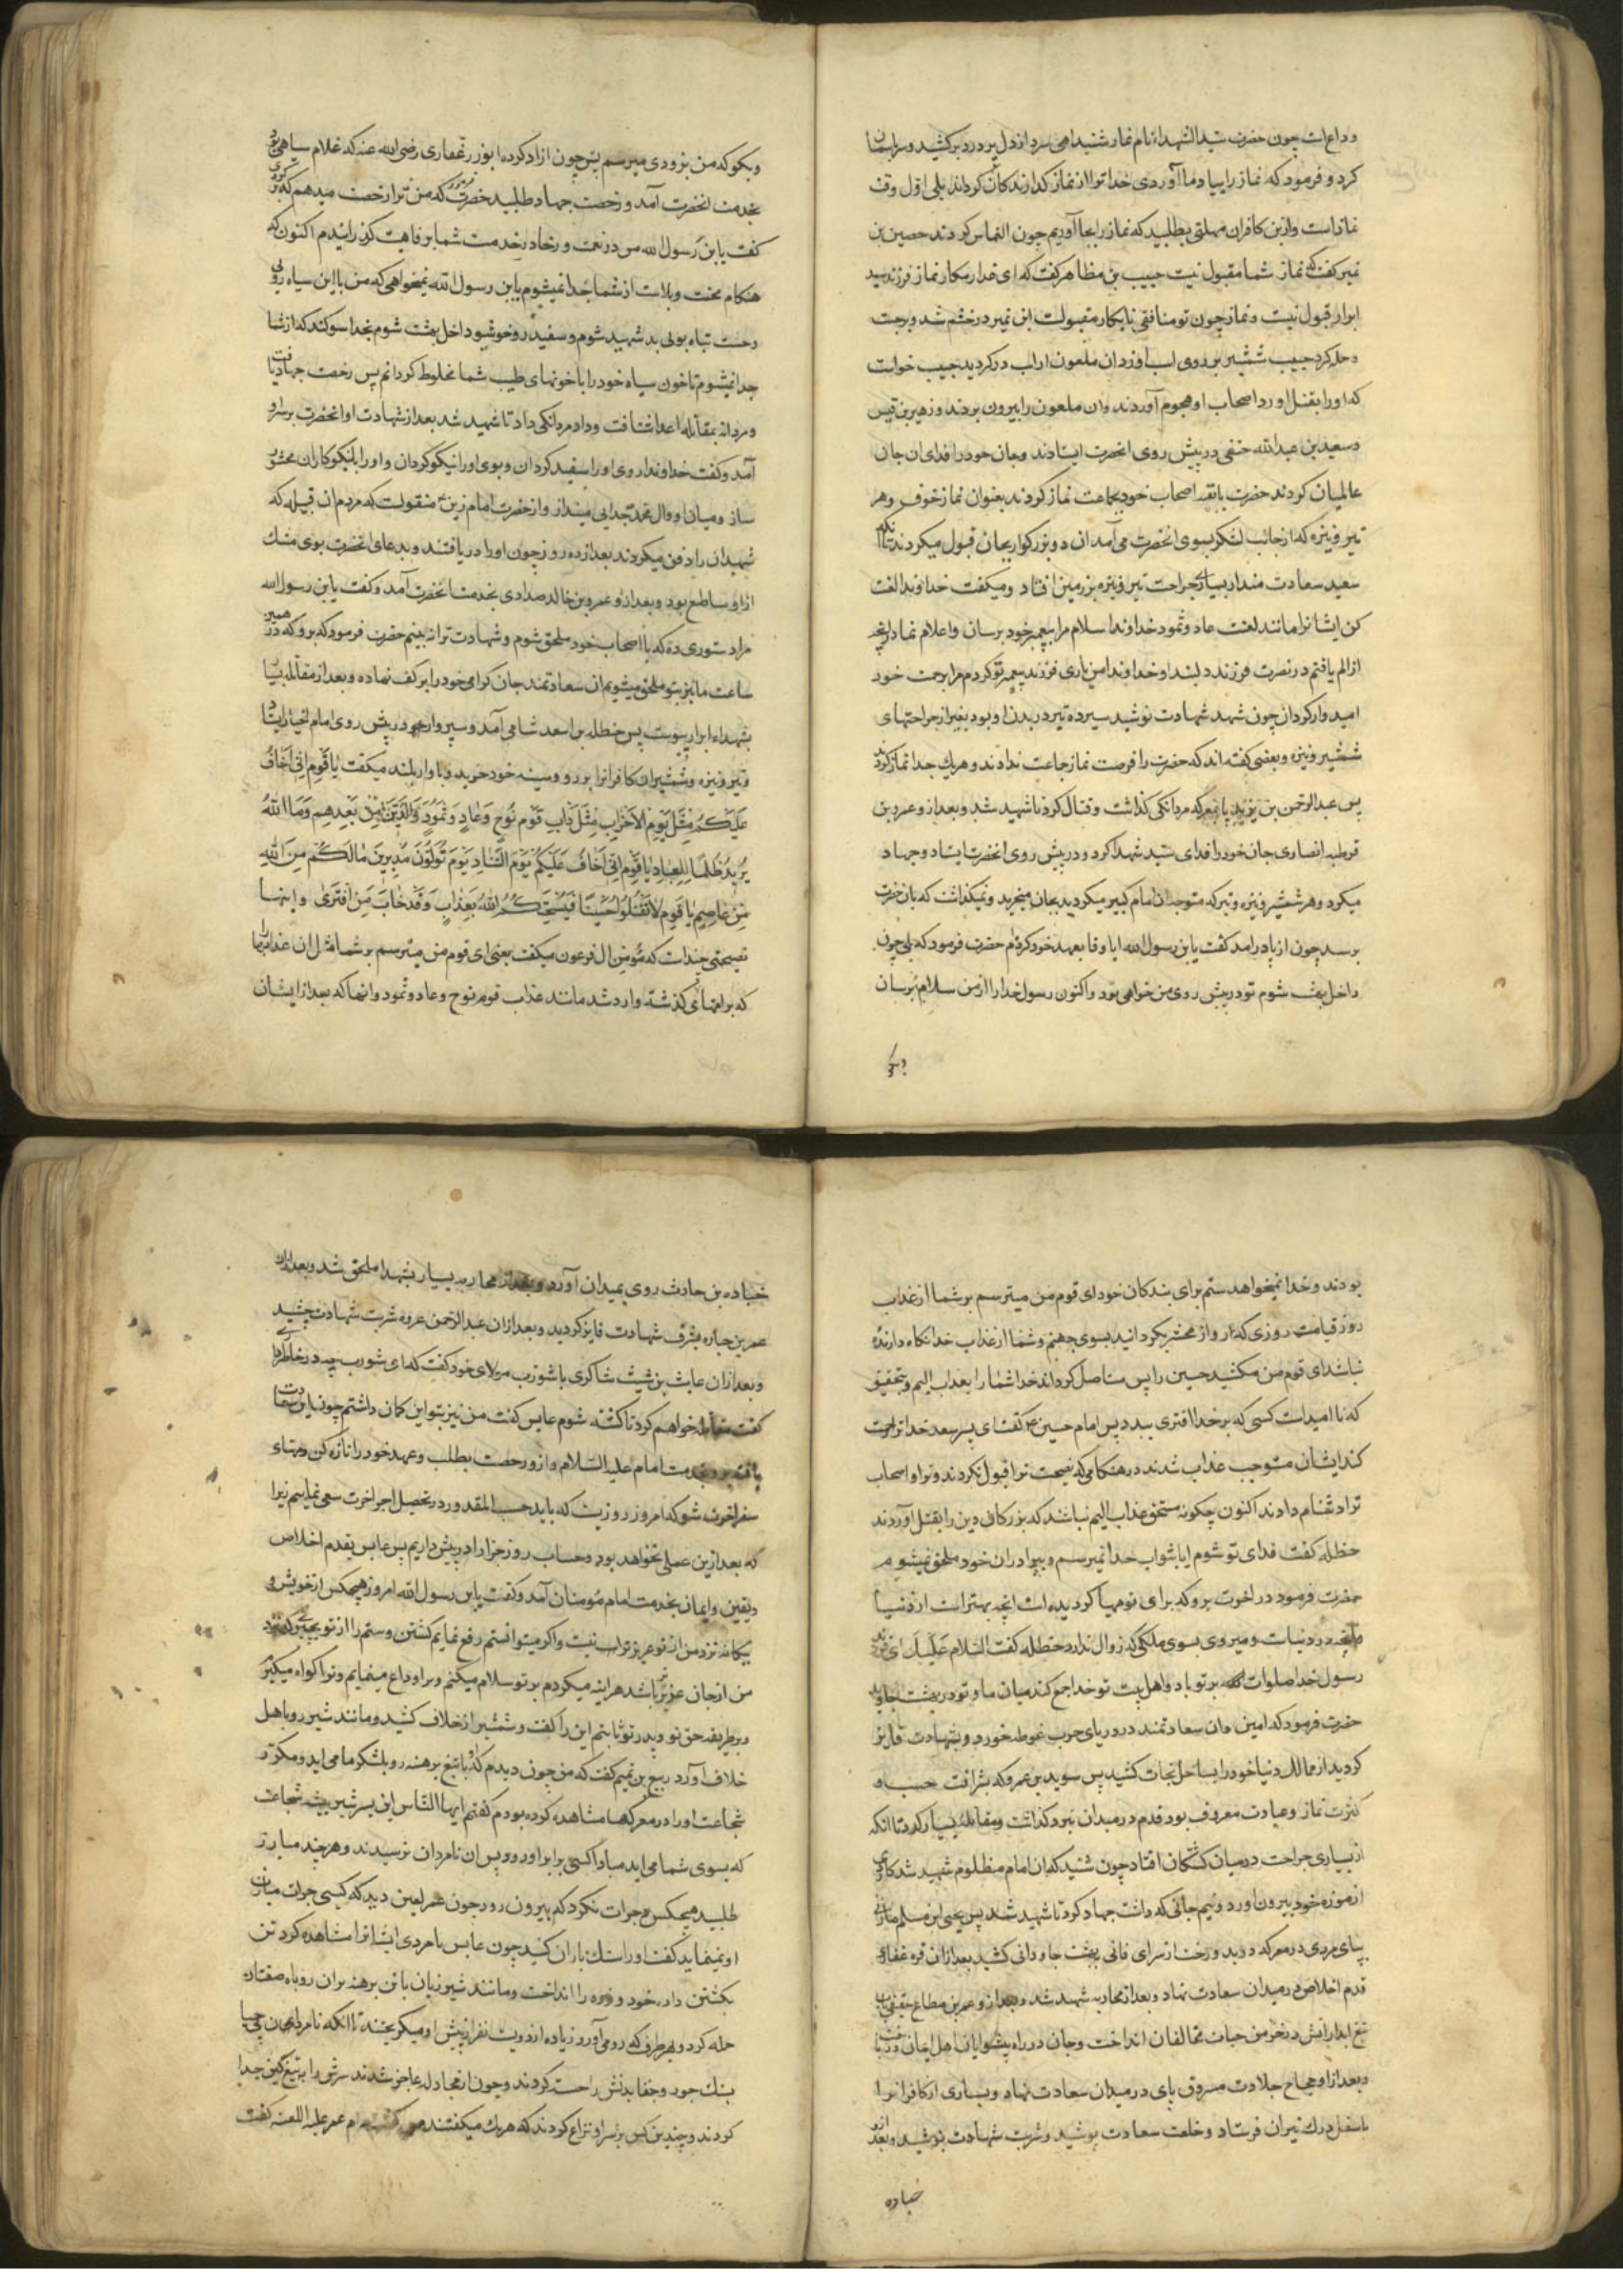 وداع است چون حضرت سید الشهدا نام نماز شنید اهی سرد از دل پر درد برکشید و سر باسمان
کرد و فرمود که نماز را بیاد ما آوردی خدا ترا از نماز گذارندکان کرداند بلی اول وقت
نماز است و ازین کافران مهلتی بطلبید که نماز را بجا آوریم چون التماس کردند حصین بن
نمیر کفت که نماز شما مقبول نیست حبیب بن مظاهر کفت که ای غدار مکار نماز فرزند سید
ابرار قبول نیست و نماز چون تو منافقی نابکار مقبولست ابن نمیر در خشم شد و برجست
و حمله کرد حبیب شمشیر بر روی اسب او زد ان ملعون از اسب در کردید حبیب خواست
که او را بقتل اورد اصحاب او هجوم آوردند و ان ملعون را بیرون بردند و زهیر بن قیس
و سعید بن عبدالله حنفی در پیش روی انحضرت ایستادند و جان خود را فدای ان جان
عالمیان کردند حضرت با بقیه اصحاب خود بجماعت نماز کردند بعنوان نماز خوف و هر
تیر و نیزه که از جانب لشکر بسوی انحضرت می آمد ان دو بزرکوار بجان قبول میکردند تا انکه
سعید سعادت مند از بسیاری جراحت تیر و نیزه بر زمین افتاد و میکفت خداوندا لعنت
کن ایشانرا مانند لعنت عاد و ثمود خداوندا سلام مرا به پیغمبر خود برسان و اعلام نما او را انچه
از الم یافتم در نصرت فرزند دلبند او خداوندا من یاری فرزند پیغمبر تو کردم مرا برحمت خود
امیدوار کردان چون شهد شهادت نوشید سیزده تیر در بدن او بود بغیر از جراحتهای
شمشیر و نیزه و بعضی کفته اند که حضرت را فرصت نماز جماعت ندادند و هر یک جدا نماز کردند
پس عبد الرحمن بن یزید پا بمعرکه مردانکی کذاشت و قتال کرد تا شهید شد و بعد از و عمرو بن
قرطه انصاری جان خود را فدای سید شهدا کرد و در پیش روی انحضرت ایستاد و جهاد
میکرد و هر شمشیر و نیزه و تیر که متوجه ان امام کبیر میکردید بجان میخرید و نمیکذاشت که بان حضرت
برسد چون از پا در امد کفت یا بن رسول الله ایا وفا بعهد خود کردم حضرت فرمود که بلی چون
داخل بهشت شوم تو در پیش روی من خواهی بود و اکنون رسول خدا را از من سلام برسان
و بکو که من بزودی میرسم پس چون ازاد کرده ابوذر غفاری رضی الله عنه که غلام سیاهی بود
بخدمت انحضرت آمد و رخصت جهاد طلبید حضرت فرمود که من ترا رخصت میدهم که برکردی
کفت یا بن رسول الله من در نعمت و رخا در خدمت شما برفاهیت کذرانیدم اکنون که
هنکام محنت و بلاست از شما جدا نمیشوم یا بن رسول الله نمیخواهی که من با این سیاه رویی
و حسب تباه بوی بد شهید شوم و سفید رو و خوشبو داخل بهشت شوم بخدا سوکند که از شما
جدا نمیشوم تا خون سیاه خود را با خونهای طیب شما مخلوط کردانم پس رخصت جهاد یافت
و مردانه بمقابله اعدا شتافت و داد مردانکی داد تا شهید شد بعد از شهادت او انحضرت بر سر او
آمد و کفت خداوندا روی او را سفید کردان و بوی او را نیکو کردان و او را با نیکوکاران محشور
ساز و میان او و ال محمد جدایی مینداز و از حضرت امام زین ع منقولست که مردم ان قبیله که
شهیدان را دفن میکردند بعد از ده روز چون او را دریافتند و بدعای انحضرت بوی مشک
از او ساطع بود و بعد از و عمرو بن خالد صداوی بخدمت انحضرت آمد و کفت یا بن رسول الله
مرا دستوری ده که با اصحاب خود ملحق شوم و شهادت ترا نه بینم حضرت فرمود که برو که در همین
ساعت ما نیز بتو ملحق میشویم ان سعادتمند جان کرامی خود را بر کف نهاده و بعد از مقابله بسیار
بشهداء ابرار پیوست پس حنظله بن اسعد شامی آمد و سپروار خود در پیش روی امام اخیار ایستاد
و تیر و نیزه و شمشیر ان کافرانرا بر رو و سینه خود خرید و با واز بلند میکفت یا قوم انی اخاف
علیکم مثل یوم الاحزاب مثل داب قوم نوح وعاد وثمود والذین من بعدهم وما الله
یرید ظلما للعباد یا قوم انی اخاف علیکم یوم التناد یوم تولون مدبرین مالکم من الله
من عاصم یا قوم لا تقتلوا حسینا فیسحتکم الله بعذاب وقد خاب من افتری و اینها
نصیحتی چند است که مؤمن ال فرعون میکفت یعنی ای قوم من میترسم بر شما مثل ان عذابها
که بر امتهای کذشته وارد شد مانند عذاب قوم نوح و عاد و ثمود و انها که بعد از ایشان
بودند و خدا نمیخواهد ستم برای بندکان خود ای قوم من میترسم بر شما از عذاب
روز قیامت روزی که رو از محشر بکردانید بسوی جهنم و شما را از عذاب خدا نکاه دارنده
نباشد ای قوم من مکشید حسین را پس مستاصل کرداند خدا شما را بعذاب الیم و بتحقیق
که نا امید است کسی که بر خدا افتری ببندد پس امام حسین ع کفت ای پسر سعد خدا ترا رحمت
کند ایشان مستوجب عذاب شدند در هنکامی که نصیحت ترا قبول نکردند و ترا و اصحاب
ترا دشنام دادند اکنون چکونه مستحق عذاب الیم نباشند که بزرکان دین را بقتل آوردند
حنظله کفت فدای تو شوم ایا بثواب خدا نمیرسم و ببرادران خود ملحق نمیشوم
حضرت فرمود در اخرت برو که برای تو مهیا کردیده است انچه بهتر است از دنیا
و انچه در دنیاست و میروی بسوی ملکی که زوال ندارد حنظله کفت السلام علیک ای فرزند
رسول خدا صلوات الله بر تو باد و اهل بیت تو خدا جمع کند میان ما و تو در بهشت جاوید
حضرت فرمود که امین و ان سعادتمند در دریای حرب غوطه خورد و بشهادت فایز
کردید از مهالک دنیا خود را بساحل نجات کشید پس سوید بن عمرو که بشرافت حسب و
کثرت نماز و عبادت معروف بود قدم در میدان نبرد کذاشت و مقابله بسیار کرد تا انکه
از بسیاری جراحت در میان کشتکان افتاد چون شنید که ان امام مظلوم شهید شد کاردی
از موزه خود بیرون اورد و نیم جانی که داشت جهاد کرد تا شهید شد پس یحیی ابن مسلم مازنی
بپای مردی در معرکه دوید و رخت از سرای فانی ببهشت جاودانی کشید بعد از ان قره غفاری
قدم اخلاص در میدان سعادت نهاد و بعد از محاربه شهید شد و بعد از و عمر بن مطاع جعفی بان
تیغ ابدار اتش در خرمن حیات مخالفان انداخت و جان در راه پیشوایان اهل ایمان در باخت
و بعد از او حجاج جلادت مسروق پای در میدان سعادت نهاد و بسیاری از کافرانرا
باسفل درک نیران فرستاد و خلعت سعادت پوشید و شربت شهادت نوشید و بعد از و
جناده
جناده بن حارث روی بمیدان آورد و بعد از محاربه بسیار بشهدا ملحق شد و بعد از ان
عمر بن جناده بشرف شهادت فایز کردید و بعد از ان عبد الرحمن عروه شربت شهادت چشید
و بعد از ان عابس بن شبیب شاکری با شوذب مولای خود کفت که ای شوذب چه در خاطر داری
کفت مقاتله خواهم کرد تا کشته شوم عابس کفت من نیز بتو این کمان داشتم چون این سعادت
یافته برو بخدمت امام علیه السلام و از و رخصت بطلب و عهد خود را تازه کن و مهیاء
سفر اخرت شو که امروز روزیست که باید حسب المقدور در تحصیل اجر اخرت سعی نماییم زیرا
که بعد ازین عملی نخواهد بود و حساب روز جزا را در پیش داریم پس عابس بقدم اخلاص
و یقین و ایمان بخدمت امام مؤمنان آمد و کفت یا بن رسول الله امروز هیچکس از خویش و
بیکانه نزد من از تو عزیزتر نیست و اکر میتوانستم رفع نمایم کشتن و ستم را از تو بچیزی که نزد
من از جان عزیزتر باشد هر اینه میکردم بر تو سلام میکنم و ترا وداع مینمایم و ترا کواه میکیرم
و بر طریقه حق تو و پدر تو ثابتم این را کفت و شمشیر از غلاف کشید و مانند شیر رو باهل
خلاف آورد ربیع بن تمیم کفت که من چون دیدم که با تیغ برهنه رو بلشکر ما می اید و مکرر
شجاعت او را در معرکها مشاهده کرده بودم کفتم ایها الناس این پسر شیر بیشه شجاعت
که بسوی شما می اید مبادا کسی برابر او رود پس ان نامردان ترسیدند و هر چند مبارز
طلبید هیچکس جرات نکرد که بیرون رود چون عمر لعین دید که کسی جرات مبارزت
او نمینماید کفت او را سنک باران کنید چون عابس نامردی ایشانرا مشاهده کرد تن
بکشتن داد، خود و زره را انداخت و مانند شیر ژیان با تن برهنه بران روباه صفتان
حمله کرد و بهر طرف که رو می آورد زیاده از دویست نفر از پیش او میکریختند تا انکه نامردان بی حیا
بسنک جور و جفا بدنش را خسته کردند و چون از مجادله عاجز شدند سرش را به تیغ کین جدا
کردند و چندین کس بر سر او نزاع کردند که هر یک میکفتند من کشته ام عمر علیه اللعنه کفت